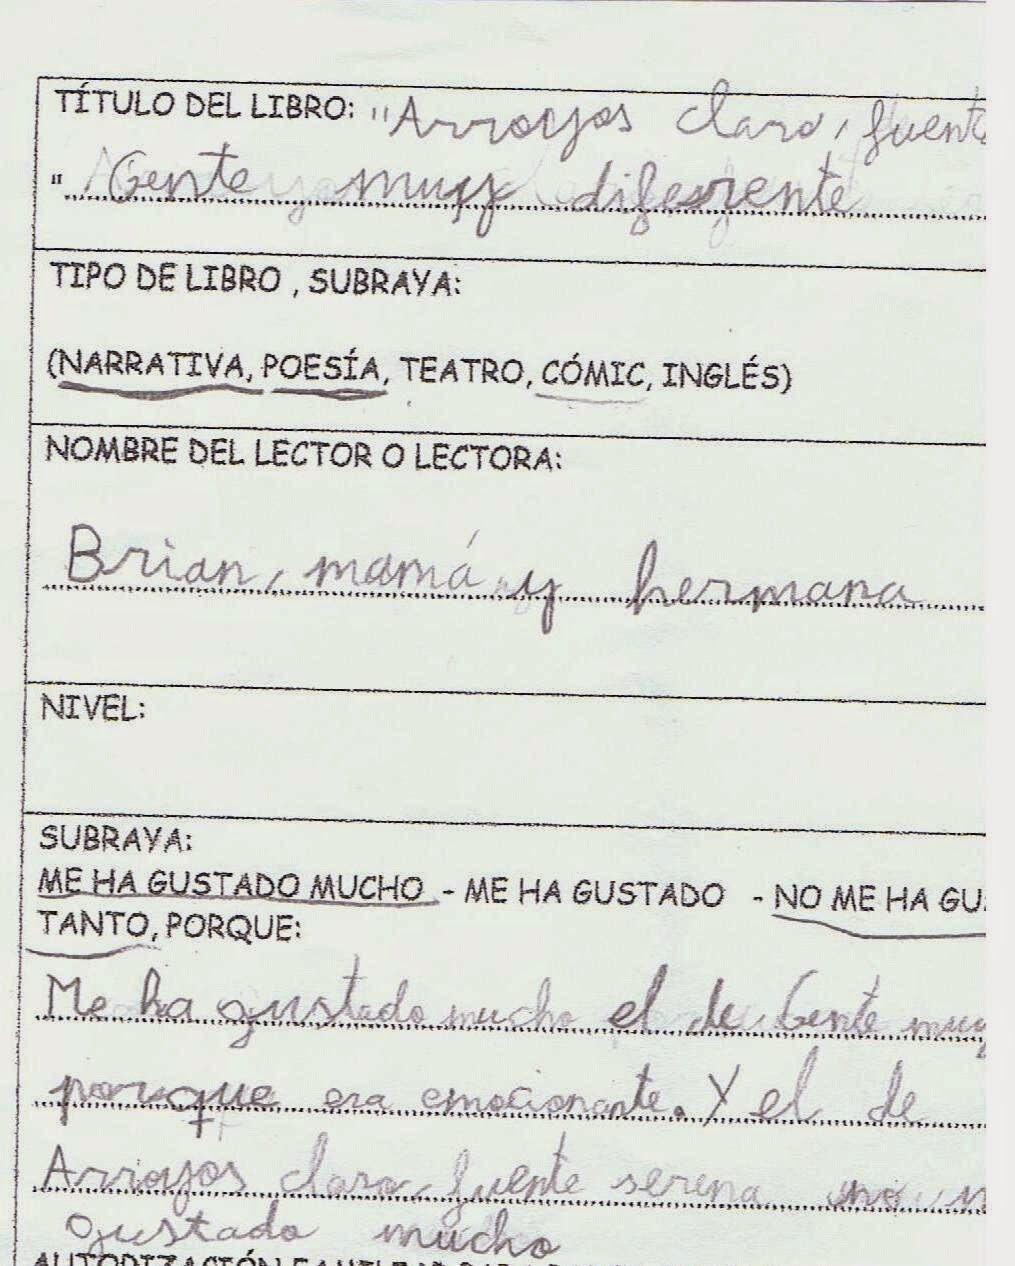 TÍTULO DEL LIBRO: "Arroyos claro, fuente
" Gente muy diferente
TIPO DE LIBRO , SUBRAYA:
(NARRATIVA, POESÍA, TEATRO, CÓMIC, INGLÉS)
NOMBRE DEL LECTOR O LECTORA:
Brian, mamá y hermana
NIVEL:
SUBRAYA:
ME HA GUSTADO MUCHO - ME HA GUSTADO - NO ME HA GUS
TANTO, PORQUE:
Me ha gustado mucho el de Gente muy
porque era emocionante. Y el de
Arroyos claro, fuente serena no m
gustado mucho